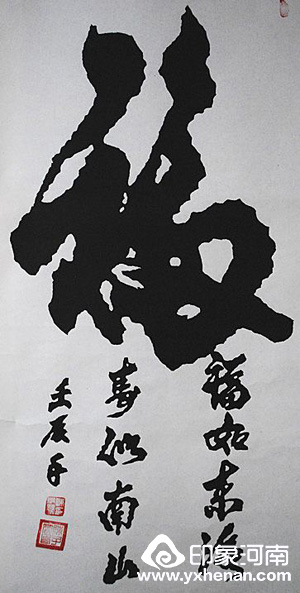 福
福如東海
寿似南山
壬辰年
印象河南
www.yxhenan.com